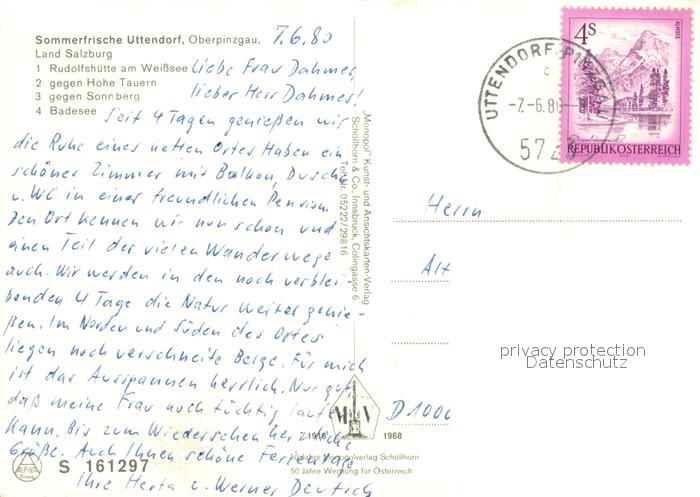 Sommerfrische Uttendorf, Oberpinzgau,
Land Salzburg
1 Rudolfshütte am Weißsee
2 gegen Hohe Tauern
3 gegen Sonnberg
4 Badesee
7.6.80
Liebe Frau Dahmes,
lieber Herr Dahmes!
Seit 4 Tagen genießen wir
die Ruhe eines netten Ortes. Haben ein
schönes Zimmer mit Balkon, Dusche
u. WC in einer freundlichen Pension.
Den Ort kennen wir nun schon und
einen Teil der vielen Wanderwege
auch. Wir werden in den noch verblei-
benden 4 Tage die Natur weiter genie-
ßen. Im Norden und Süden des Ortes
liegen noch verschneite Berge. Für mich
ist das Ausspannen herrlich. Nur gut,
daß meine Frau noch tüchtig laufen
kann. Bis zum Wiedersehen herzliche
Grüße. Auch Ihnen schöne Ferientage
Ihre Herta u. Werner Deutsch
S 161297
Monopol Kunst- und Ansichtskarten-Verlag
Schöllhorn & Co., Innsbruck, Colingasse 6
Tel. Nr. 05222/29816
MV
1918 1968
50 Jahre Monopolverlag Schöllhorn
50 Jahre Werbung für Österreich
UTTENDORF, PINZGAU
c
-7.-6.80-
572
4S
ALMSEE
REPUBLIK ÖSTERREICH
Herrn
Alt
D 1000
privacy protection
Datenschutz